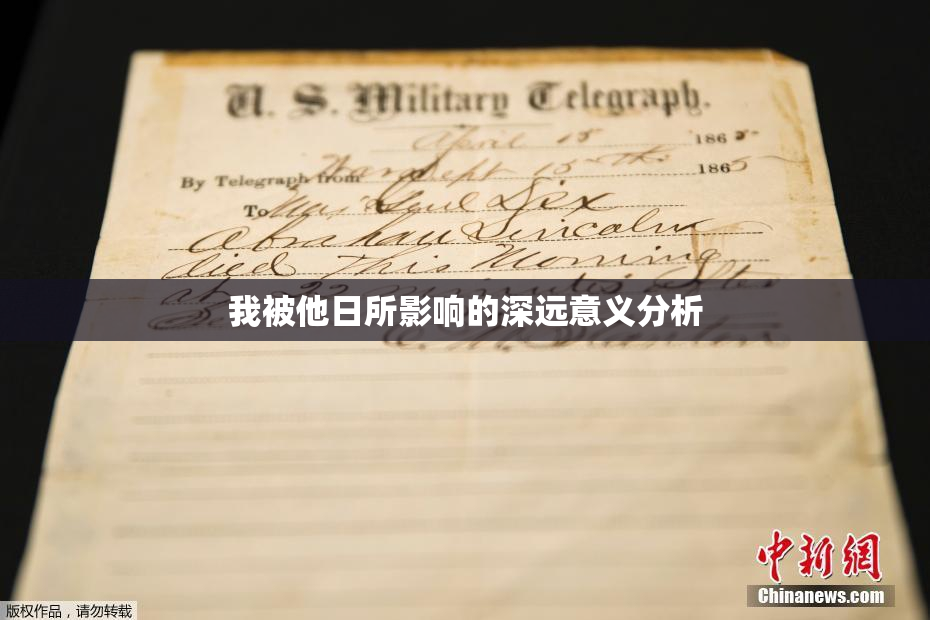 U. S. Military Telegraph.
April 15 1865
By Telegraph from War Dept 15th 1865
To Maj Genl Dix
Abraham Lincoln
died This Morning
at 22 minutes after
我被他日所影响的深远意义分析
E. M. Stanton
中新網
Chinanews.com
版权作品，请勿转载